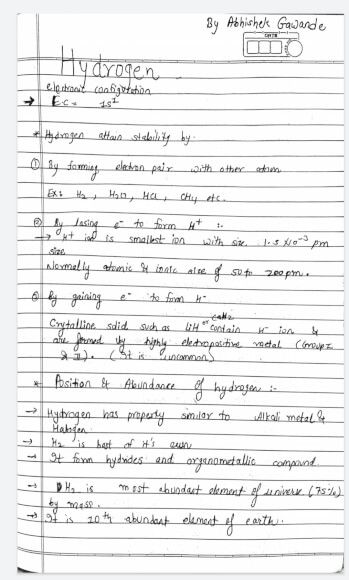 By Abhishek Gawande
DATE
Hydrogen
electronic configuration
→ EC = 1s¹
* Hydrogen attain stability by
① By forming electron pair with other atom
Ex: H₂, H₂O, HCl, CH₄ etc.
② By losing e⁻ to form H⁺ :-
→ H⁺ ion is smallest ion with size 1.5 x10⁻³ pm
size
Normally atomic & ionic size of 50 to 200pm.
③ By gaining e⁻ to form H⁻
Crytalline solid such as LiH or CaH₂ contain H⁻ ion &
are formed by highly electropositive metal (Group I
& II). (It is uncommon)
* Position & Abundance of hydrogen :-
→ Hydrogen has property similar to Alkali metal &
Halogen.
→ H₂ is best of it's own
→ It form hydrides and organometallic compound.
→ H₂ is most abundant element of universe (75%)
by mass.
→ It is 10th abundant element of earth.